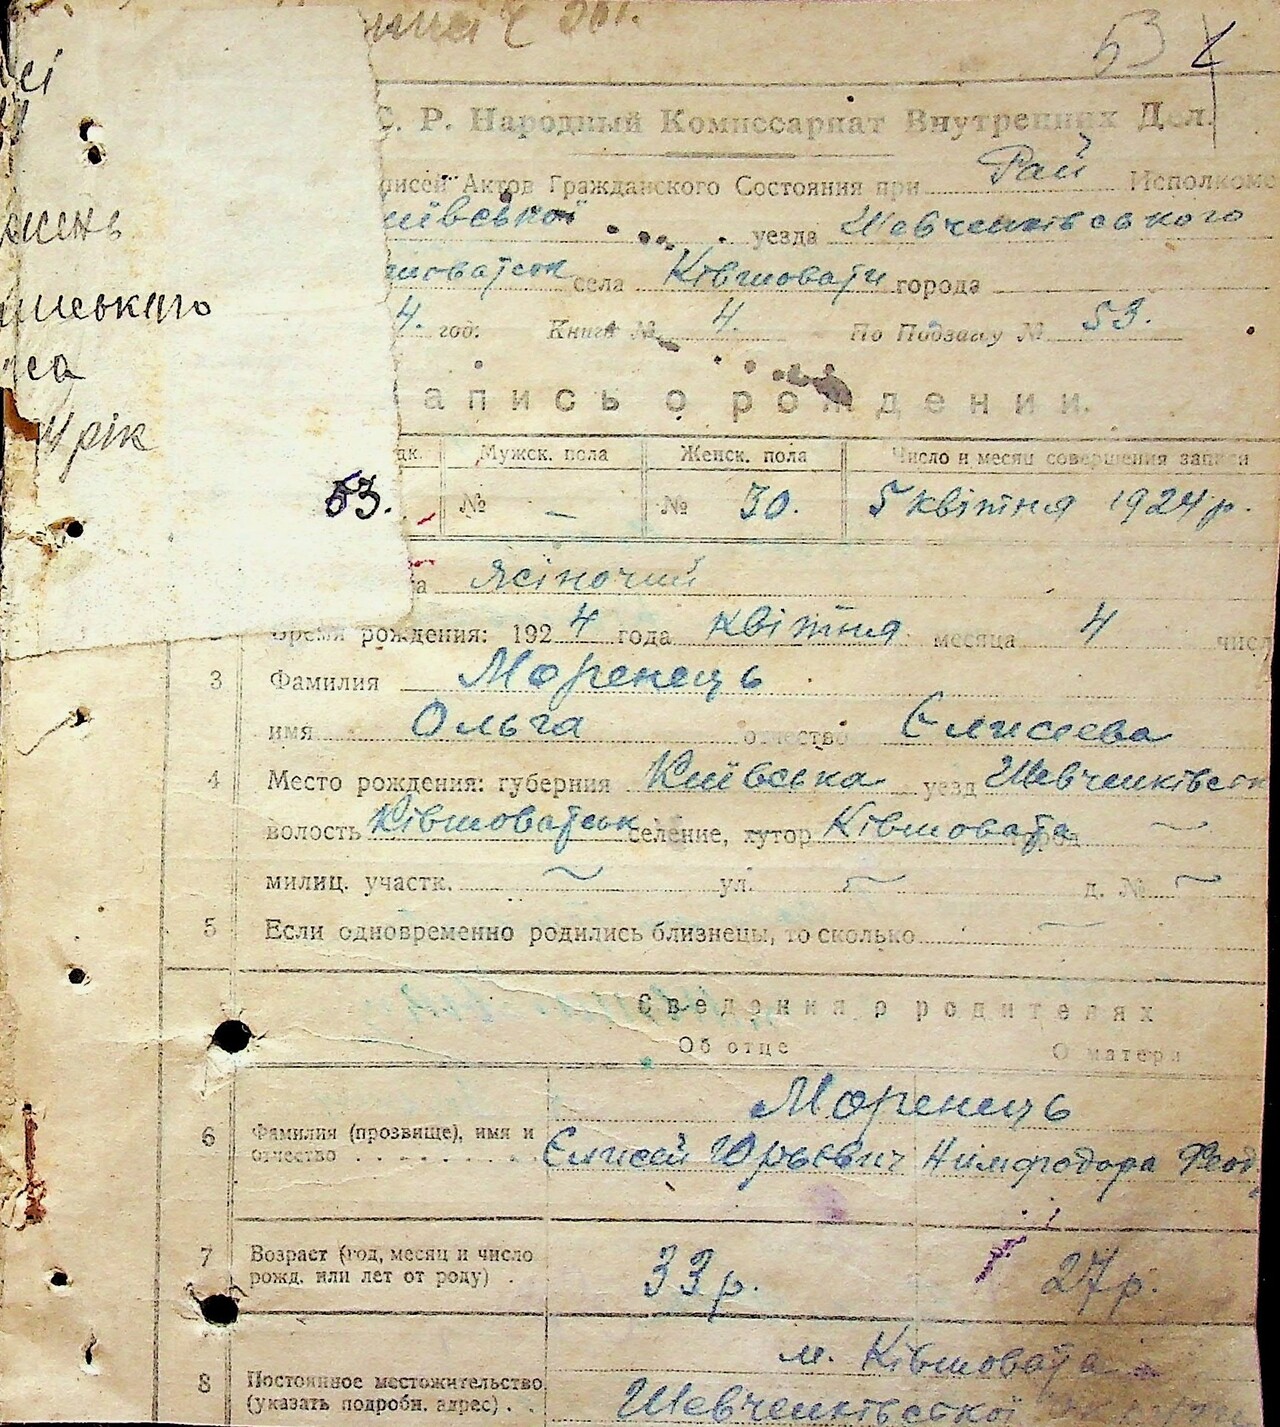 53
С. Р. Народный Комиссариат Внутренних Дел.
писей Актов Гражданского Состояния при Рай Исполкоме
иївської уезда Шевченківського
шоватськ села Ківшовати города
4. год: Книга № 4. По Подзагу № 53.
апись о рождении.
Мужск. пола Женск. пола Число и месяц совершения записи
№ — № 30. 5 квітня 1924 р.
рік
53.
Время рождения: 1924 года квітня месяца 4 числ
3 Фамилия Моренець
имя Ольга отчество Єлисеева
4 Место рождения: губерния Київська уезд Шевченківськ
волость Ківшоватськ селение, хутор Ківшовата город ~
милиц. участк. ~ ул. ~ д. № ~
5 Если одновременно родились близнецы, то сколько —
Сведения о родителях
Об отце О матери
Моренець
6 Фамилия (прозвище), имя и отчество Єлисей Юрьєвич Нимфодора Феод
7 Возраст (год, месяц и число рожд. или лет от роду) 33 р. 27 р.
м. Ківшовата
8 Постоянное местожительство (указать подробн. адрес) Шевченківської